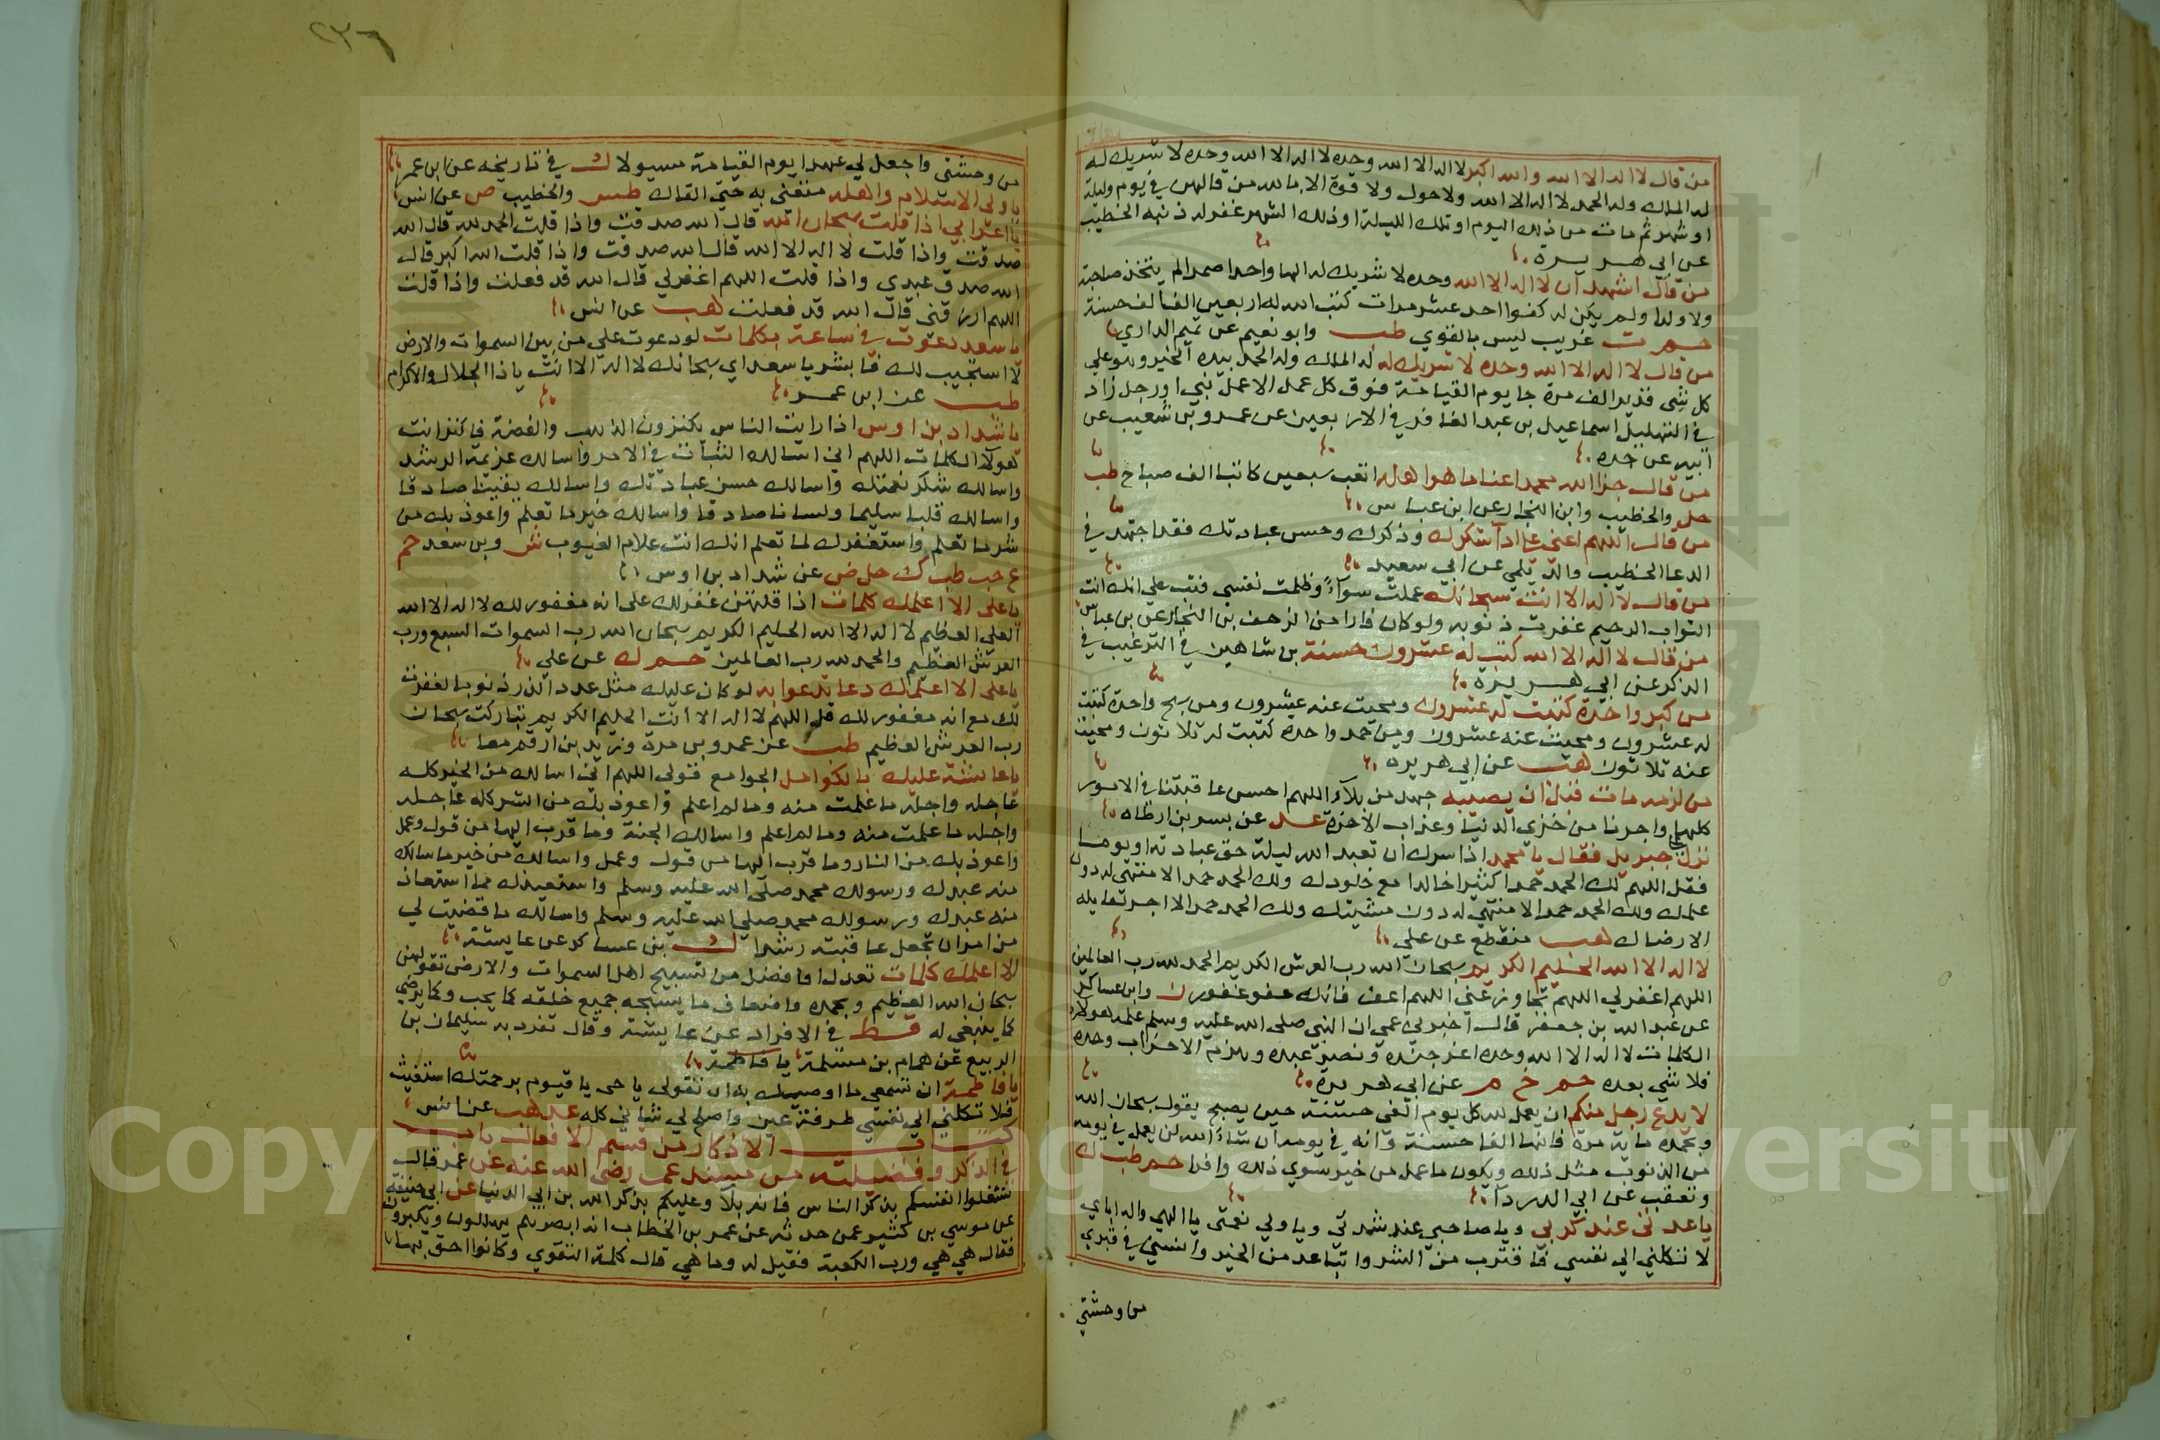 من قال لا اله الا الله والله اكبر لا اله الا الله وحده لا اله الا الله وحده لا شريك له
له الملك وله الحمد لا اله الا الله ولا حول ولا قوة الا بالله من قالهن في يوم وليلة
او شهر ثم مات من ذلك اليوم او تلك الليلة او ذلك الشهر غفر له ذنبه الخطيب
عن ابي هريرة
من قال اشهد ان لا اله الا الله وحده لا شريك له الها واحدا صمدا لم يتخذ صاحبة
ولا ولدا ولم يكن له كفوا احد عشر مرات كتب الله له اربعين الف الف حسنة
حم ت غريب ليس بالقوي طب وابو نعيم عن تميم الداري
من قال لا اله الا الله وحده لا شريك له له الملك وله الحمد بيده الخير وهو علي
كل شي قدير الف مرة جا يوم القيامة فوق كل عمل الا عمل نبي او رجل زاد
في التهليل اسماعيل بن عبد الغافر في الاربعين عن عمرو بن شعيب عن
ابيه عن جده
من قال جزا الله محمدا عنا ما هو اهله اتعب سبعين كاتبا الف صباح طب
حل والخطيب وابن النجار عن ابن عباس
من قال اللهم اعني علي اداء شكرك وذكرك وحسن عبادتك فقد اجتهد في
الدعا الخطيب والديلمي عن ابي سعيد
من قال لا اله الا انت سبحانك عملت سوآ وظلمت نفسي فتب علي انك انت
التواب الرحيم غفرت ذنوبه ولو كان فارا من الزحف بن النجار عن بن عباس
من قال لا اله الا الله كتب له عشرون حسنة بن شاهين في الترغيب في
الذكر عن ابي هريرة
من كبر واحدة كتبت له عشرون ومحيت عنه عشرون ومن سبح واحدة كتبت
له عشرون ومحيت عنه عشرون ومن حمد واحدة كتبت له ثلاثون ومحيت
عنه ثلاثون هب عن ابي هريرة
من لزمه مات قبل ان يصيبه جهد من بلآء اللهم احسن عاقبتنا في الامور
كلها واجرنا من خزي الدنيا وعذاب الآخرة عد عن بسر بن ارطاه
نزل علي جبريل فقال يا محمد اذا سرك ان تعبد الله ليلة حق عبادته او يوما
فقل اللهم لك الحمد حمدا كثيرا خالدا مع خلودك ولك الحمد حمدا لا منتهى له دون
علمك ولك الحمد حمدا لا منتهي له دون مشيتك ولك الحمد حمدا لا اجر لقايله
الا رضاك هب منقطع عن علي
لا اله الا الله الحليم الكريم سبحان الله رب العرش الكريم الحمد لله رب العالمين
اللهم اغفر لي اللهم تجاوز عني اللهم اعف فانك عفو غفور ن وابن عساكر
عن عبد الله بن جعفر قال اخبرني عمي ان النبي صلي الله عليه وسلم علمه هولاء
الكلمات لا اله الا الله وحده اعز جنده ونصر عبده وهزم الاحزاب وحده
فلا شي بعده حم خ م عن ابي هريرة
لا يدع رجل منكم ان يعمل لله كل يوم الفي حسنة حين يصبح يقول سبحان الله
وبحمده ماية مرة فانها الفا حسنة وانه في يومه ان شاء الله لن يعمل في يومه
من الذنوب مثل ذلك ويكون ما عمل من خير سوي ذلك وافرا حم طب ك
وتعقب عن ابي الدردآ
يا عدتي عند كربي ويا صاحبي عند شدتي ويا ولي نعمتي يا الهي واله اباي
لا تكلني الي نفسي فاقترب من الشر واتباعد من الخير وانسني في قبري
من وحشتي
٢٣٦
من وحشتي واجعل لي عهدا يوم القيامة مسيولا ك في تاريخه عن ابن عمر
يا ولي الاسلام واهله متعني به حتي القاك طس والخطيب ض عن انس
يا اعرابي اذا قلت سبحان الله قال الله صدقت واذا قلت الحمد لله قال الله
صدقت واذا قلت لا اله الا الله قال الله صدقت واذا قلت الله اكبر قال
الله صدق عبدي واذا قلت اللهم اغفر لي قال الله قد فعلت واذا قلت
اللهم ارزقني قال الله قد فعلت هب عن انس
يا سعد دعوت في ساعة بكلمات لو دعوت علي من بين السموات والارض
لاستجيب لك فابشر يا سعد اي سبحانك لا اله الا انت يا ذا الجلال والاكرام
طب عن ابن عمر
يا شداد بن اوس اذا رايت الناس يكنزون الذهب والفضة فاكنز انت
هولآ الكلمات اللهم اني اسالك الثبات في الامر واسالك عزيمة الرشد
واسالك شكر نعمتك واسالك حسن عبادتك واسالك يقينا صادقا
واسالك قلبا سليما ولسانا صادقا واسالك خير ما تعلم واعوذ بك من
شر ما تعلم واستغفرك لما تعلم انك انت علام الغيوب ش وبن سعد حم
ع حب طب ك حل ض عن شداد بن اوس
يا علي الا اعلمك كلمات اذا قلتهن غفر لك علي انه مغفور لك لا اله الا الله
العلي العظيم لا اله الا الله الحليم الكريم سبحان الله رب السموات السبع ورب
العرش العظيم والحمد لله رب العالمين حم ك عن علي
يا علي الا اعلمك دعا تدعوا به لو كان عليك مثل عدد الذر ذنوبا لغفرت
لك مع انه مغفور لك قل اللهم لا اله الا انت الحليم الكريم تباركت سبحان
رب العرش العظيم طب عن عمرو بن مرة وزيد بن ارقم معا
يا عائشة عليك بالكوامل الجوامع قولي اللهم اني اسالك من الخير كله
عاجله واجله ما علمت منه وما لم اعلم واعوذ بك من الشر كله عاجله
واجله ما علمت منه وما لم اعلم واسالك الجنة وما قرب اليها من قول وعمل
واعوذ بك من النار وما قرب اليها من قول وعمل واسالك من خير ما سالك
منه عبدك ورسولك محمد صلي الله عليه وسلم واستعيذك مما استعاذ
منه عبدك ورسولك محمد صلي الله عليه وسلم واسالك ما قضيت لي
من امر ان تجعل عاقبته رشدا ك بن عساكر عن عايشة
الا اعلمك كلمات تعدلها وافضل من تسبيح اهل السموات والارض تقولهن
سبحان الله العظيم وبحمده واضعاف ما يسبحه جميع خلقه كما يحب وكما يرضي
كما ينبغي له قط في الافراد عن عايشة وقال تفرد به سليمان بن
الربيع عن همام بن مسلمة يا فاطمة
يا فاطمة ان تسمعي ما اوصيك به ان تقولي يا حي يا قيوم برحمتك استغيث
فلا تكلني الي نفسي طرفة عين واصلح لي شاني كله عد هب عن انس
كتاب الاذكار من قسم الافعال باب
في الذكر وفضيلته من مسند عمر رضي الله عنه عن عمر قال
لا تشغلوا انفسكم بذكر الناس فانه بلآ وعليكم بذكر الله بن ابي الدنيا عن ابي حنيفة
عن موسي بن كثير عمن حدثه عن عمر بن الخطاب انه ابصرهم يهللون ويكبرون
فقال هي هي ورب الكعبة فقيل له وما هي قال كلمة التقوي وكانوا احق بها
Copyright © King Saud University